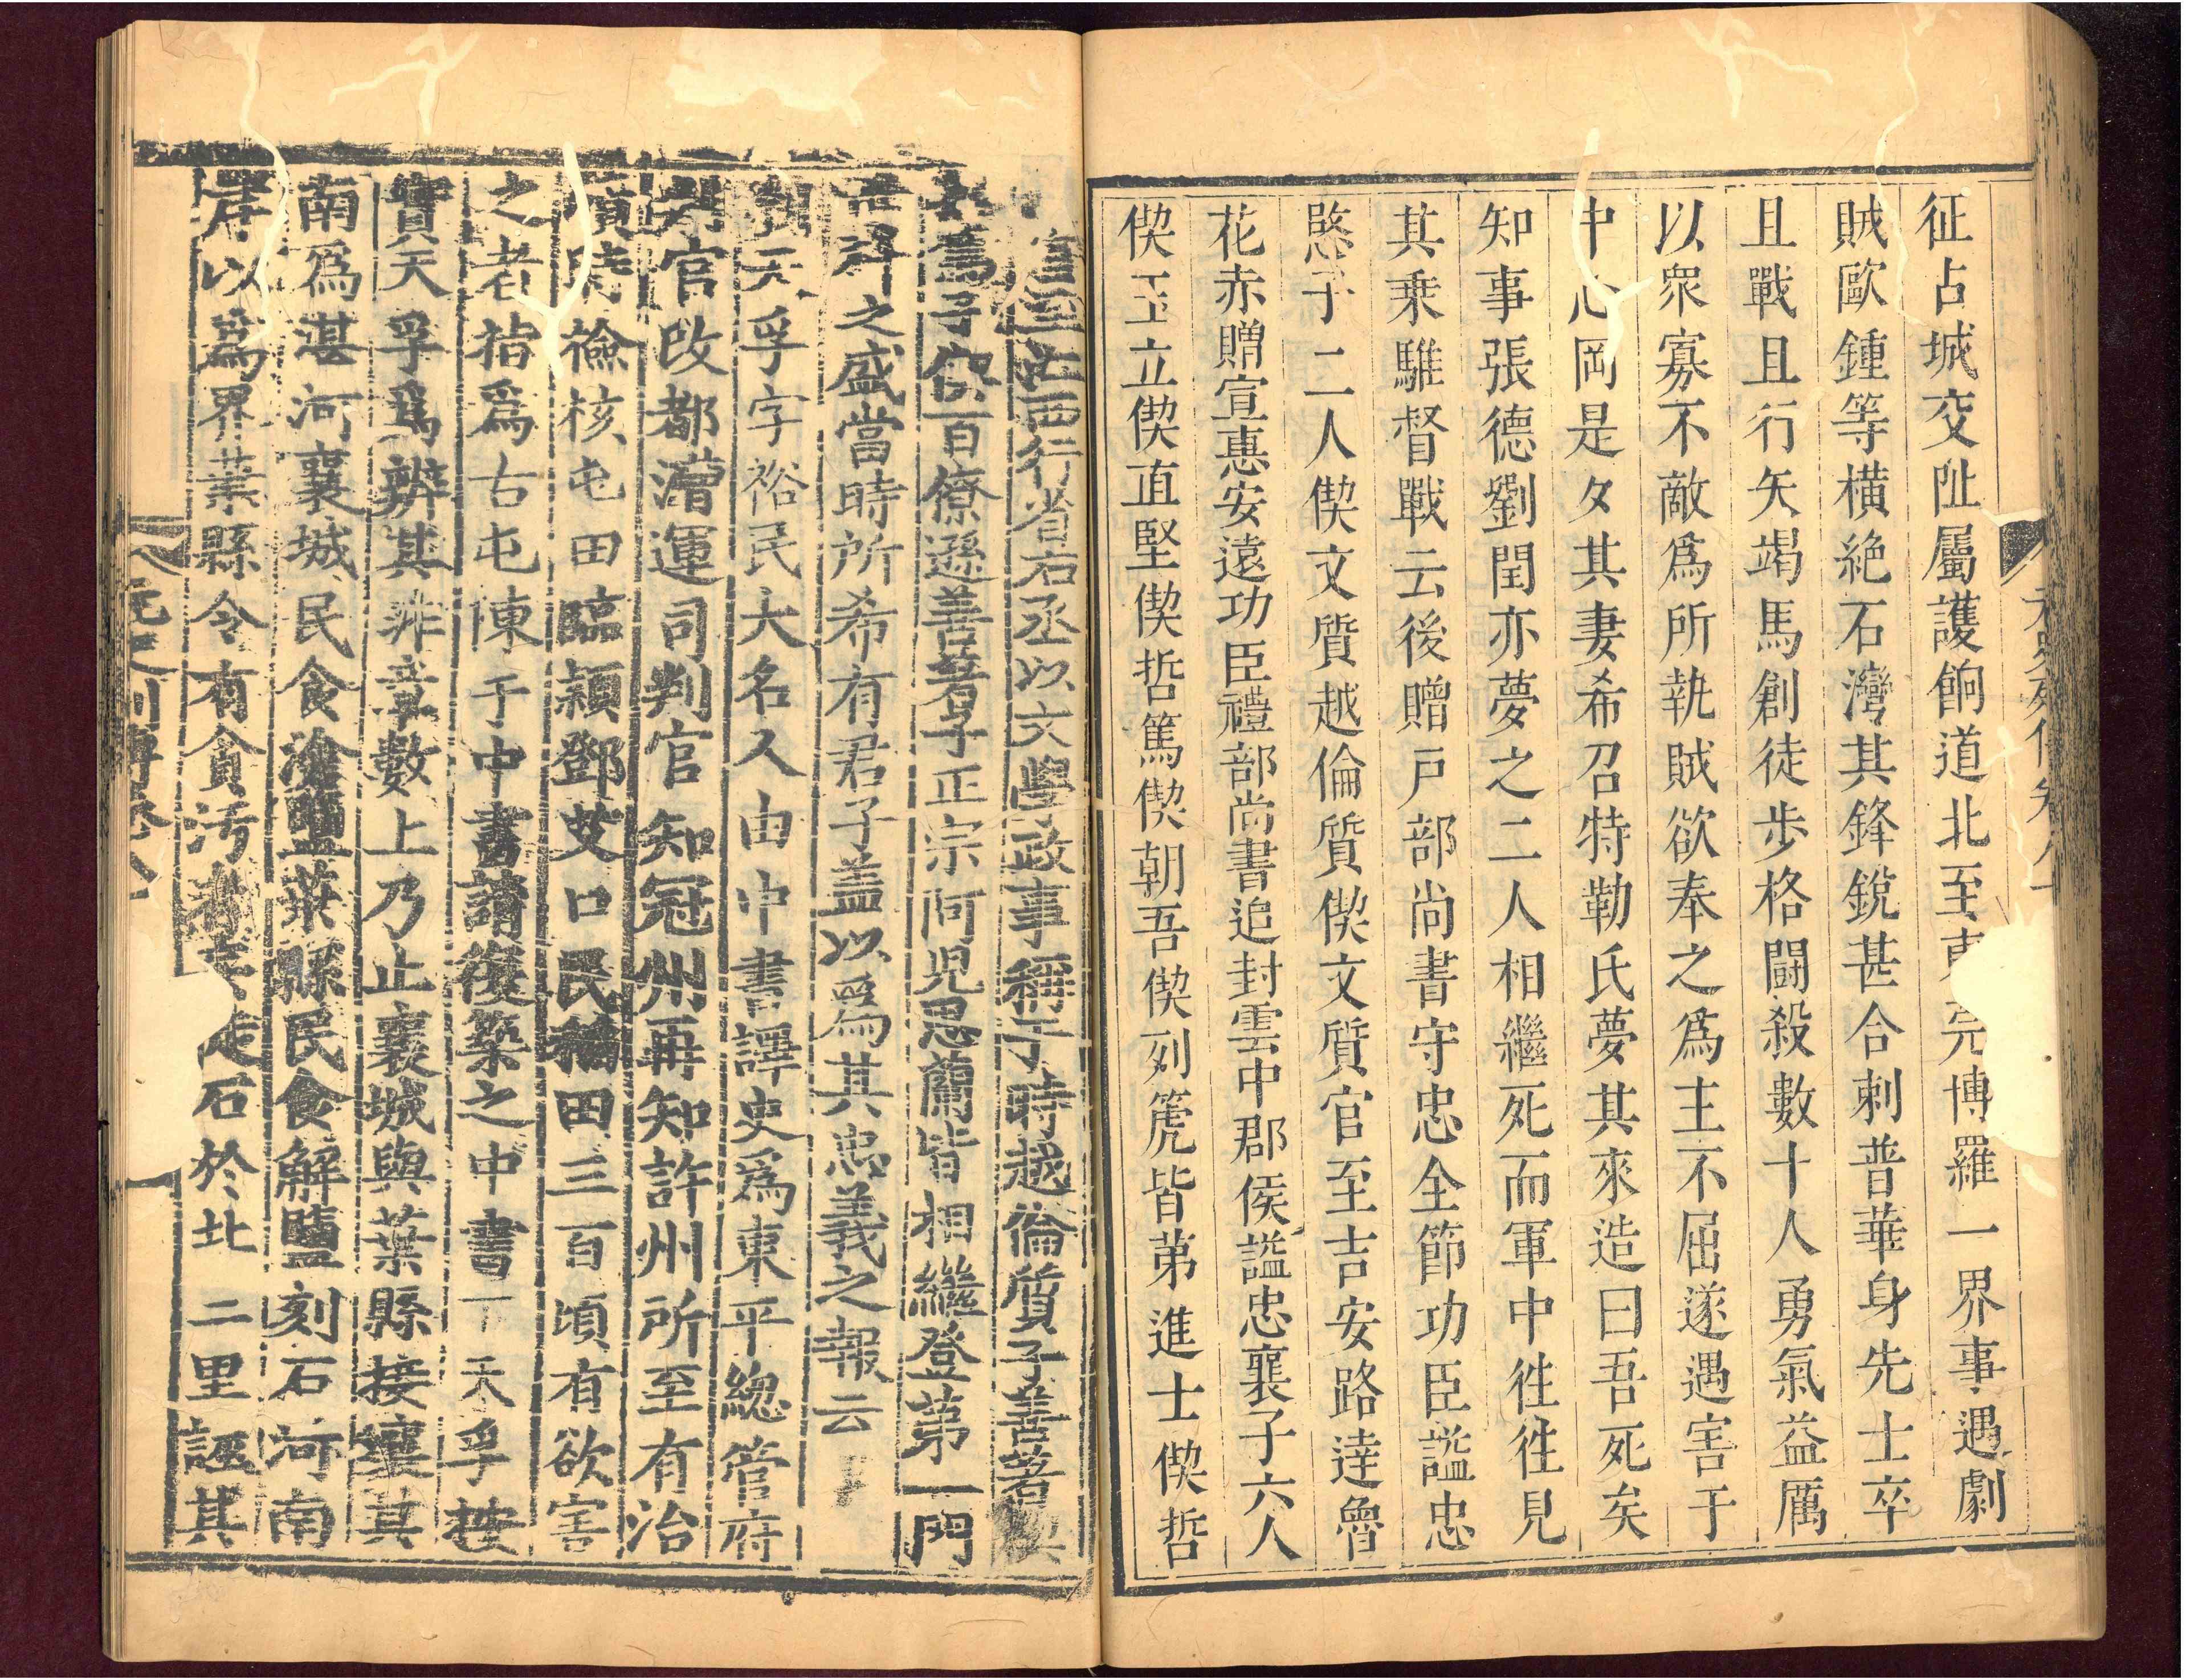 征占城交阯屬護餉道北至東莞博羅一界事遇劇
賊歐鍾等橫絕石灣其鋒銳甚合剌普華身先士卒
且戰且行矢竭馬創徒步格鬬殺數十人勇氣益厲
以衆寡不敵爲所執賊欲奉之爲主不屈遂遇害于
中心岡是夕其妻希召特勒氏夢其來造曰吾死矣
知事張德劉閏亦夢之二人相繼死而軍中徃徃見
其乗騅督戰云後贈戸部尚書守忠全節功臣謚忠
愍子二人偰文質越倫質偰文質官至吉安路達魯
花赤贈宣惠安遠功臣禮部尚書追封雲中郡侯謚忠襄子六人
偰玉立偰直堅偰哲篤偰朝吾偰列箎皆第進士偰哲
官至江西行省右丞以文學政事稱于時越倫質子善著
爲子偰百僚遜善著子正宗阿児思蘭皆相繼登第一門
世科之盛當時所希有君子盖以爲其忠義之報云
天孚字裕民大名人由中書譯史爲東平總管府
判官改都漕運司判官知冠州再知許州所至有治
檢核屯田臨潁鄧艾口民稲田三百頃有欲害
之者指爲古屯陳于中書請復築之中書下天孚按
實天孚爲辨其非章數上乃止襄城與葉縣接壤其
南爲湛河襄城民食滄鹽葉縣民食解鹽刻石河南
岸以爲界葉縣令有貪污者 走石於北二里誣其
元史列傳卷八十
元史列傳卷八十